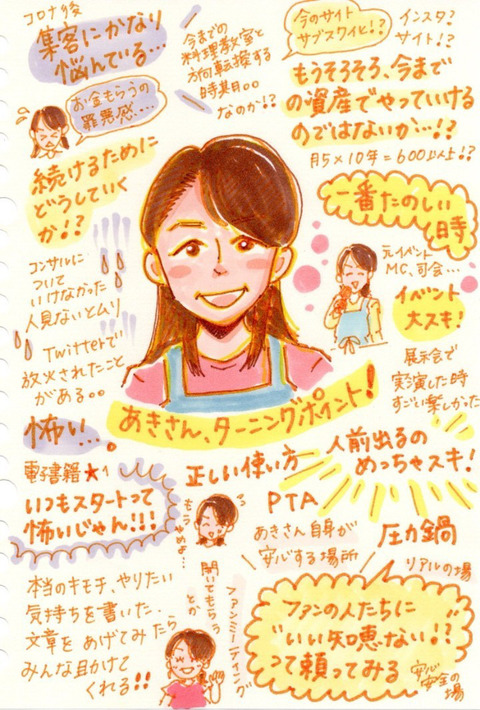 コロナ後
集客にかなり
悩んでいる…
お金もらうの
罪悪感…
今までの
料理教室と
方向転換する
時期。。
なのか!?
今のサイト
サブスクイヒ!?
インスタ?
サイト!?
もうそろそろ、今まで
の資産でやっていける
のではないか…!?
月5×10年=600以上!?
続けるために
どうしていく
か!?
一番たのしい
時
元イベント
MC、司会…
イベント
大スキ!
展示会で
実演した時
すごい楽しかった
コンサルに
ついて
いけなかった
人見ないとムリ
Twitterで
放火されたこと
がある。。
怖い…。
あきさん、ターニングポイント!
人前出るの
めっちゃスキ!
電子書籍★1
いつもスタートって
怖いじゃん!!!
正しい使い方
PTA
圧力鍋
もうやめよ…
あきさん自身が
安心する場所
リアルの場
本当のキモチ、やりたい
気持ちを書いた、
文章をあげてみたら
みんな助けて
くれる!!
聞いてもらう
とか
ファンミーティング
ファンの人たちに
"いい知恵ない!?"
って頼ってみる
安心
安全の
場